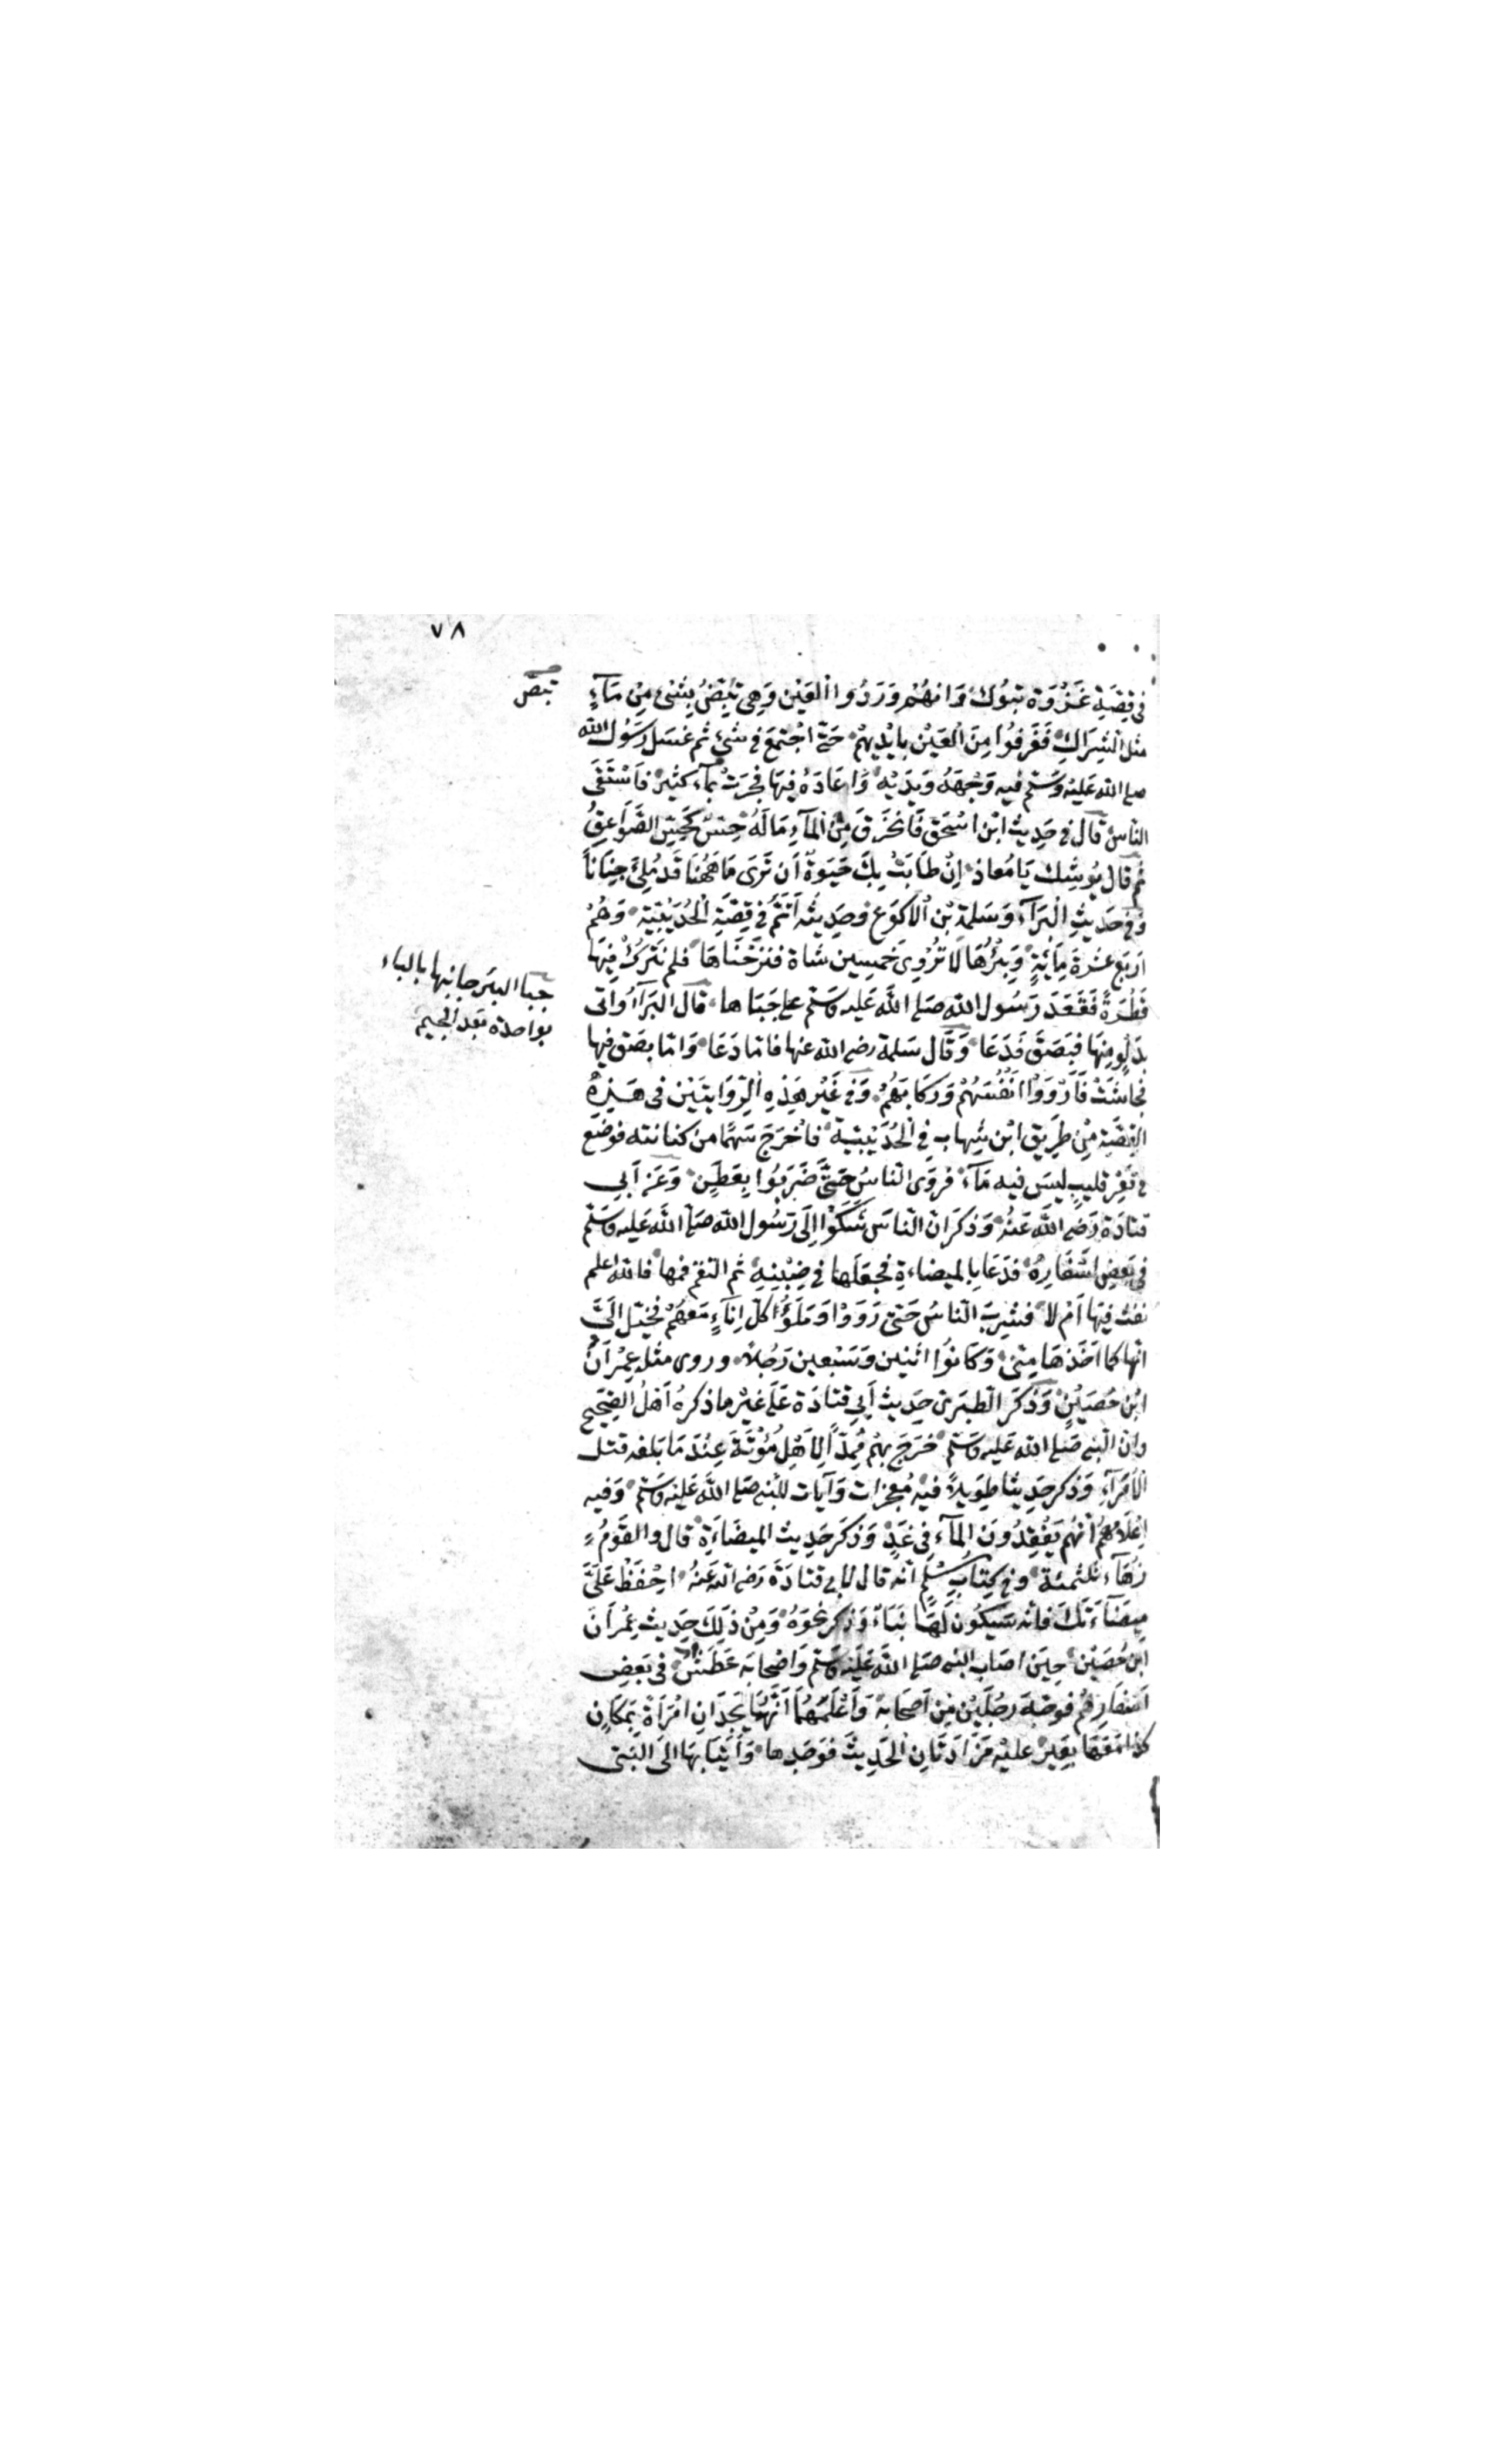 ٧٨
في قِصَّةِ غَزْوَة تبُوكَ وَانهُمْ وَرَدُوا الْعَيْنَ وَهِيَ تَبِضُّ بِشَىْءٍ مِنْ مَآءٍ
تبضّ
مثل الشِرَاكِ فَغَرَفُوا مِنَ الْعَيْنِ بِايْدِيهِمْ حَتّى اجْتَمَعَ في شيءٍ ثم غسَل رَسُولُ الله
صلى الله عَليْهِ وَسَلّم فيه وَجْهَهُ وَيدَيْهِ وَاعَادَهُ فيهَا فجرَتْ بمآءٍ كثير فَاسْتَقَى
الناسُ قال في حَدِيثِ ابْنِ اسْحَقَ فَانْخَرَقَ مِنَ الْمآءِ مَا لَهُ حِسٌّ كَحِسِّ الصَّوَاعِقِ
ثم قال يُوشِكُ يَا مُعَاذ اِنْ طَابَتْ بِكَ حَيَوةٌ اَن تَرَى مَا هٰهُنَا قَدْ مُلِئَ جِنَانًا
وَفي حَدِيثِ الْبَرَآءِ وَسَلمَة بْنِ الْاَكْوَعِ وحَدِيثُه اَتَمُّ في قِصَّةِ الْحُدَيْبِيَة وَهُمْ
اَرْبَعَ عَشْرَةَ مِائَةٍ وَبِئْرُهَا لَا تُرْوِى خَمسِين شاة فنزَحْنَاهَا فلم نَتْرُكْ فِيهَا
قَطْرَةً فَقَعَدَ رَسُول الله صَلى اللّه عَليه وَسَلم على جَبَاها قال البَرَآءُ وَاُتى
جبا البئر جانبها بالباء
بواحدة بعد الجيم
بدَلوٍ مِنهَا فبَصَقَ فَدَعَا وَقَال سَلمة رضى الله عنها فامّا دَعَا وَامّا بصَق فيها
فجاشَتْ فَاَرْوَوْا اَنْفُسَهُمْ وَرِكَابَهُمْ وَفى غَيْرِ هٰذِهِ الرِّوَايتَيْن فى هٰذِهِ
القِصَّة مِنْ طَرِيق ابْن شِهَاب في الْحُدَيْبِيَة فاَخْرَجَ سَهْمًا من كنانته فوضَع
في قَعْرِ قليبٍ ليسَ فيه مَآء فروَى النّاسُ حَتَّى ضَرَبُوا بِعَطَنٍ وَعَن اَبى
قتادَة رَضى اللّه عَنْهُ وَذكَرَ ان النّاسَ شَكَوْا اِلَى رَسُول الله صَلى اللّه عَليه وَسَلم
في بَعْضِ اسْفَارِهِ فدَعَا بِالميضاءةِ فجعَلها في ضِبْنِهِ ثم التقم فمها فالله اعلم
نفث فِيهَا اَمْ لا فشرِبَ النّاسُ حَتى رَوَوْا وَمَلَؤُا كلّ اِنَآءٍ مَعهُمْ فخيّل الَىَّ
انّها كما اَخَذهَا مِنّى وَكَانُوا اثنين وَسَبْعين رَجُلًا وروى مثله عِمْرَانُ
ابْن حُصَيْنٍ وَذكَرَ الطبَرى حَدِيث اَبى قتادَة عَلَى غيْرِ ما ذكرهُ اَهْلُ الصَّحِيح
وانّ النّبى صَلى الله عَليه وَسَلم خرَجَ بِهِم مُمِدًّا لِاَهْلِ مُؤْتَةَ عِنْدَ مَا بَلغه قتل
الاُمَرَآءِ وَذكر حَدِيثًا طوِيلًا فيْه مُعْجزات وَآيات للنّبى صَلى اللّه عَليْه وَسَلم وَفيه
اِعْلَامُهُمْ اَنهُمْ يَفْقِدُونَ المآء فِي غَدٍ وَذكَرَ حَدِيث الميضَاءَةِ قال والقَوْمُ
زُهَآءَ ثلثمئة وفي كِتَابِ مُسْلِم انه قال لابى قتادَةَ رَضى الله عَنهُ اِحْفَظْ عَلَىَّ
مِيضَآءَتكَ فانّه سَيَكُون لَهَا نَبَأٌ وَذكر نحْوَهُ وَمِنْ ذَلِكَ حَدِيث عِمْرَانَ
ابن حُصَيْن حِينَ اصَابَ النبى صَلى اللّه عَليْه وَسَلم وَاصْحَابَه عَطَشٌ في بَعْضِ
اَسْفَارِهُم فوجّه رجُلَيْن مِن اَصْحَابه وَاَعْلَمَهُمَا اَنّهُمَا يَجِدَانِ امْرَاَةً بِمَكَانِ
كذا مَعَهَا بعِيرٌ عليْه مَزَادَتَانِ الْحَدِيثَ فوَجَدها وَأتيَا بِهَا الى النّبى